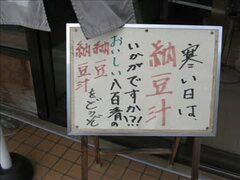 寒い日は、
納豆汁
いかがですか?!
おいしい八百清の
納豆
納豆汁をどうぞ